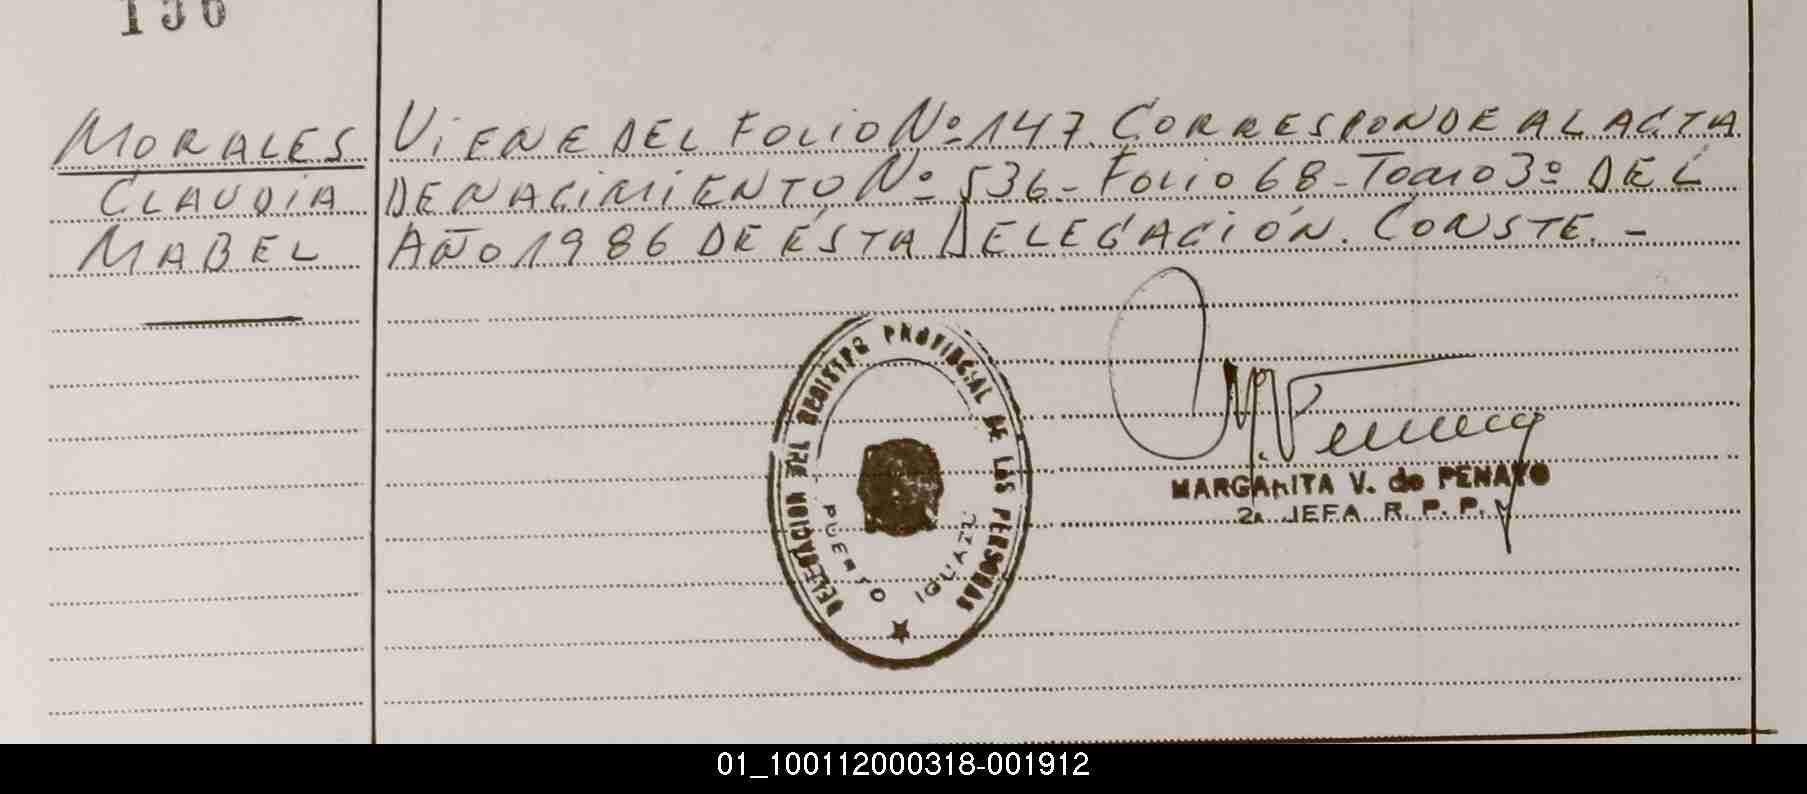 156
MORALES
CLAUDIA
MABEL
VIENE DEL FOLIO Nº 147. CORRESPONDE AL ACTA
DE NACIMIENTO Nº 536 - FOLIO 68 - TOMO 3º DEL
AÑO 1986 DE ÉSTA DELEGACIÓN. CONSTE. -
DELEGACION DEL REGISTRO PROVINCIAL DE LAS PERSONAS
PUERTO IGUAZU
MARGARITA V. de PENAYO
2a JEFA R. P. P.
01_100112000318-001912